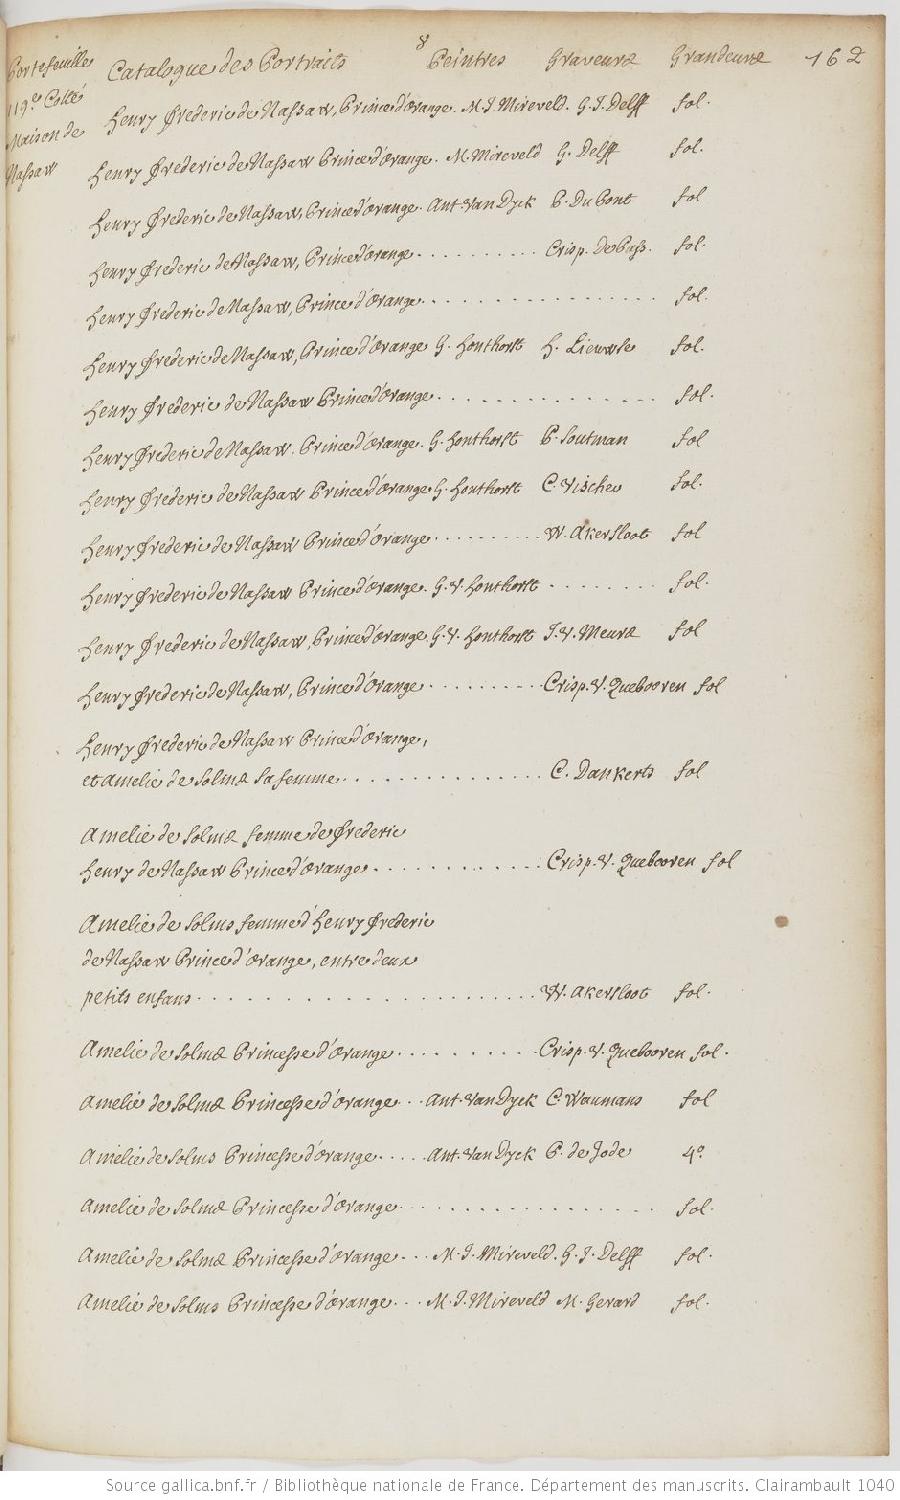 8
Portefeuille Catalogue des Portraits Peintres Graveurs Grandeurs 162
119e Cotté
Maison de
Nassaw
Henry Frederic de Nassaw, Prince d'Orange. M. J. Mireveld. G. J. Delff fol.
Henry Frederic de Nassaw Prince d'Orange. M. Mireveld G. Delff fol.
Henry Frederic de Nassaw, Prince d'Orange. Ant. Van Dyck P. Du Pont fol
Henry Frederic de Nassaw, Prince d'Orange .......... Crisp. De Pass. fol.
Henry Frederic de Nassaw, Prince d'Orange .................... fol.
Henry Frederic de Nassaw, Prince d'Orange G. Honthorst H. Lieuwse fol.
Henry Frederic de Nassaw Prince d'Orange .................... fol.
Henry Frederic de Nassaw. Prince d'Orange. G. Honthorst P. Soutman fol
Henry Frederic de Nassaw Prince d'Orange G. Honthorst C. Vischer fol.
Henry Frederic de Nassaw Prince d'Orange .......... W. Akersloot fol
Henry Frederic de Nassaw Prince d'Orange. G. V. Honthorst ........ fol.
Henry Frederic de Nassaw, Prince d'Orange G. V. Honthorst J. V. Meurs fol
Henry Frederic de Nassaw, Prince d'Orange .......... Crisp. V. Quebooren fol
Henry Frederic de Nassaw Prince d'Orange,
et Amelie de Solms sa femme .......... C. Dankerts fol
Amelie de Solms femme de Frederic
Henry de Nassaw Prince d'Orange .......... Crisp. V. Quebooren fol
Amelie de Solms femme d'Henry Frederic
de Nassaw Prince d'Orange, entre deux
petits enfans .................... W. Akersloot fol.
Amelie de Solms Princesse d'Orange .......... Crisp. V. Quebooren fol.
Amelie de Solms Princesse d'Orange ... Ant. Van Dyck C Waumans fol
Amelie de Solms Princesse d'Orange .... Ant. Van Dyck P. de Jode 4o.
Amelie de Solms Princesse d'Orange .................... fol.
Amelie de Solms Princesse d'Orange ... M. J. Mireveld. G. J. Delff fol.
Amelie de Solms Princesse d'Orange ... M. J. Mireveld M. Gerard fol.
Source gallica.bnf.fr / Bibliothèque nationale de France. Département des manuscrits. Clairambault 1040